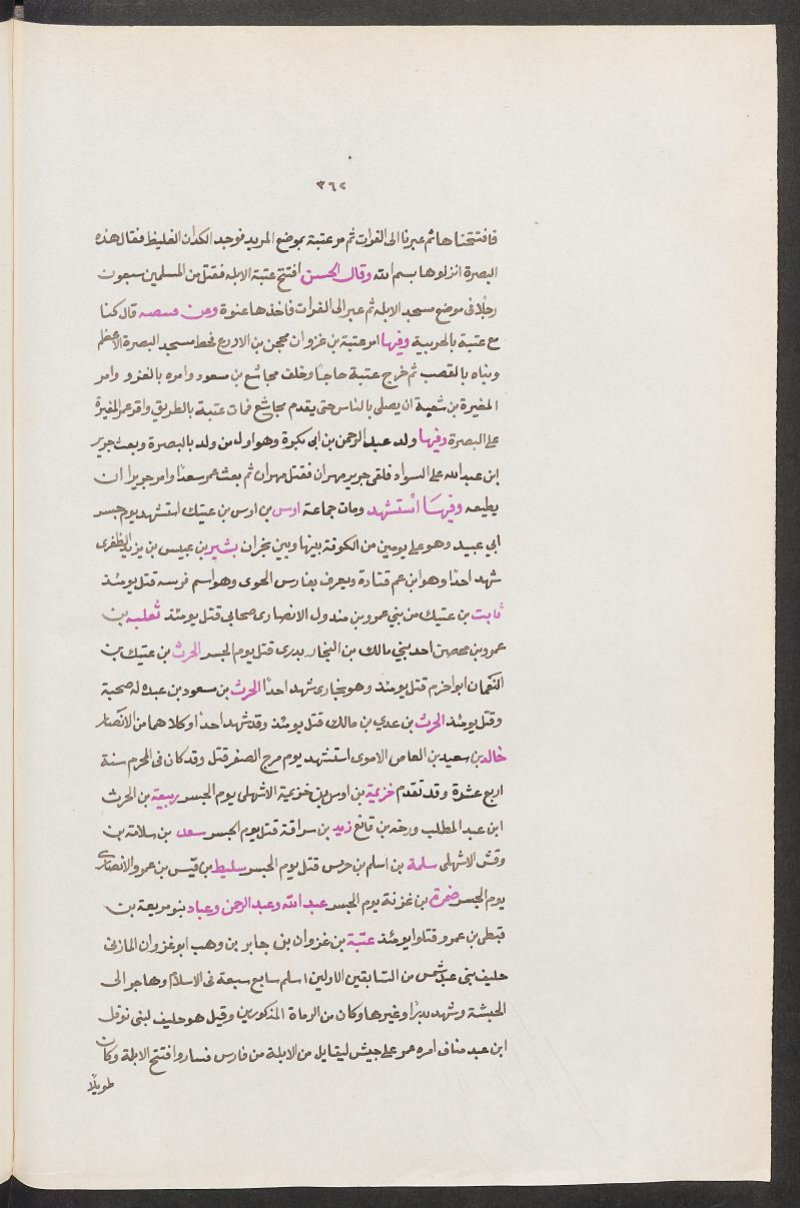 ٣٦٢
فافتتحناها ثم عبرنا الى الفرات ثم مر عتبة بموضع المربد فوجد الكدان الغليظ فقال هذه
البصرة انزلوها بسم الله وقال الحسن افتتح عتبة الابله فقتل من المسلمين سبعون
رجلا فى موضع مسجد الابله ثم عبر الى الفرات فاخذها عنوة وعن قال كنا
مع عتبة بالخريبة وفيها امر عتبة بن غزوان محجن بن الاورع فخط مسجد البصرة الاعظم
وبناه بالقصب ثم خرج عتبة حاجا وخلف مجاشع بن مسعود وامره بالغزو وامر
المغيرة بن شعبة ان يصلى بالناس حتى يقدم مجاشع فمات عتبة بالطريق واقر عمر المغيرة
على البصرة وفيها ولد عبد الرحمن بن ابى بكرة وهو اول من ولد بالبصرة وبعث جرير
ابن عبد الله على السواد فلقى جرير مهران فقتل مهران ثم بعث عمر سعدا وامر جريرا ان
يطيعه وفيها استشهد ومات جماعة اوس بن اوس بن عتيك استشهد يوم جسر
ابي عبيد وهو على يومين من الكوفة بينها وبين نجران بشير بن عبيس بن يزيد الظفرى
شهد احدا وهو ابن عم قتادة ويعرف بفارس الحوى وهو اسم فرسه قتل يومئذ
ثابت بن عتيك من بني عمرو بن مندول الانصارى صحابى قتل يومئذ ثعلبه بن
عمرو بن محصن احد بني مالك بن النجار بدرى قتل يوم الجسر الحرث بن عتيك بن
النعمان ابو اخزم قتل يومئذ وهو نجارى شهد احدا الحرث بن مسعود بن عبده له صحبة
وقتل يومئذ الحرث بن عدي بن مالك قتل يومئذ وقد شهد احدا وكلاهما من الانصار
خالد بن سعيد بن العاص الاموى استشهد يوم مرج الصفر قتل وقد كان فى المحرم سنة
اربع عشرة وقد تقدم خزيمة بن اوس بن خزيمة الاشهلى يوم الجسر ربيعة بن الحرث
ابن عبد المطلب ورخه بن قانع زيد بن سراقة قتل يوم الجسر سعد بن سلامة بن
وقش الاشهلى سلمة بن اسلم بن حريس قتل يوم الجسر سليط بن قيس بن عمرو الانصارى
يوم الجسر ضمرة بن غزنة يوم الجسر عبد الله وعبد الرحمن وعباد بنو مربعة بن
قبطى بن عمرو قتلوا يومئذ عتبة بن غزوان بن جابر بن وهب ابو غزوان المازنى
حليف بنى عبد شمس من السابقين الاولين اسلم سابع سبعة فى الاسلام وهاجر الى
الحبشة وشهد بدرا وغيرها وكان من الرماة المذكورين وقيل هو حليف لبنى نوفل
ابن عبد مناف امره عمر على جيش ليقاتل من الابلة من فارس فساروا فتح الابلة وكان
طويلا